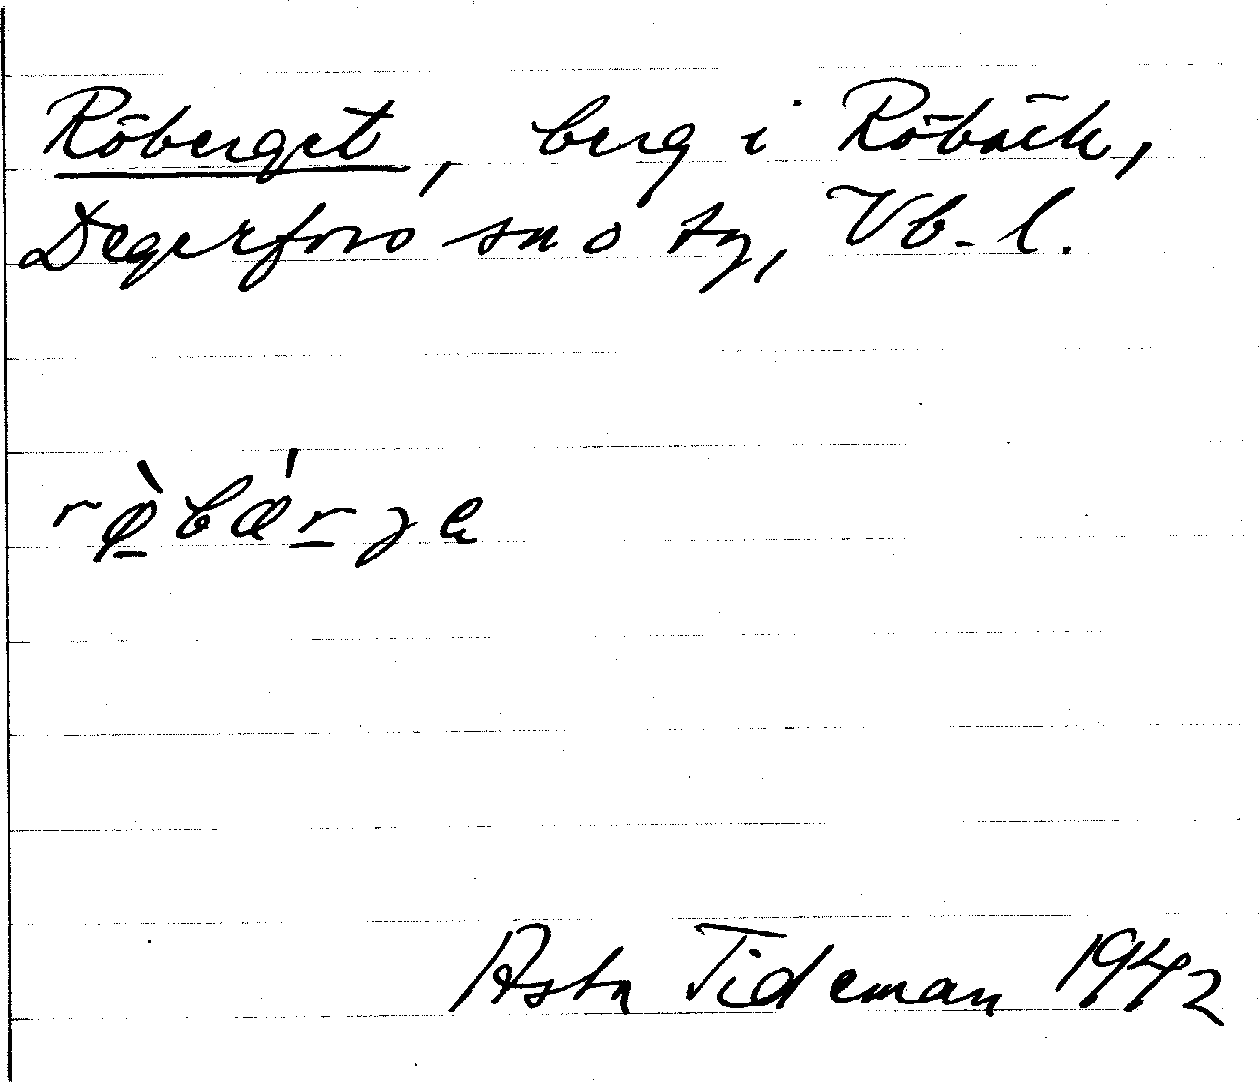 Röberget, berg i Röbäck,
Degerfors sn o tg, Vb. l.
rø̀bárge
Asta Tideman 1942